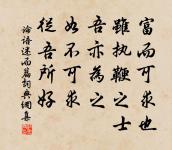 富而可求也
雖執鞭之士
吾亦為之
如不可求
從吾所好
論語述而篇詞典網集